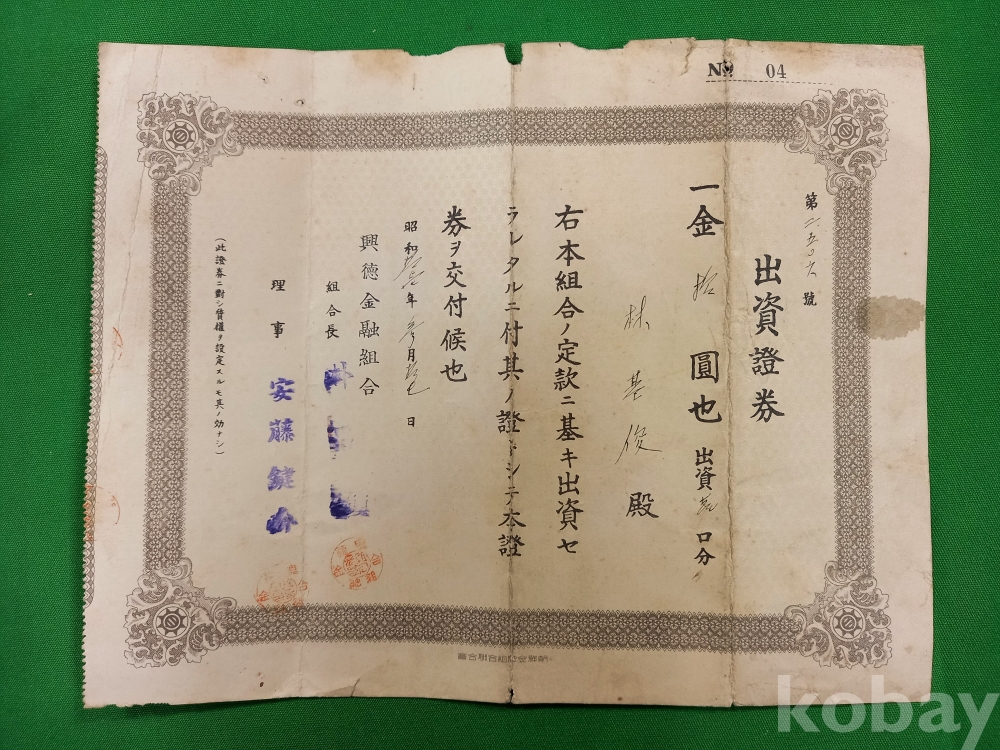 No 04
第二五〇六號
出資證券
一金 拾 圓也 出資壹口分
林基俊殿
右本組合ノ定款ニ基キ出資セ
ラレタルニ付其ノ證トシテ本證
券ヲ交付候也
昭和 年 月 日
興德金融組合
組合長
理事 安藤
(此證券ニ對シ質權ヲ設定スルモ其ノ効ナシ)
kobay